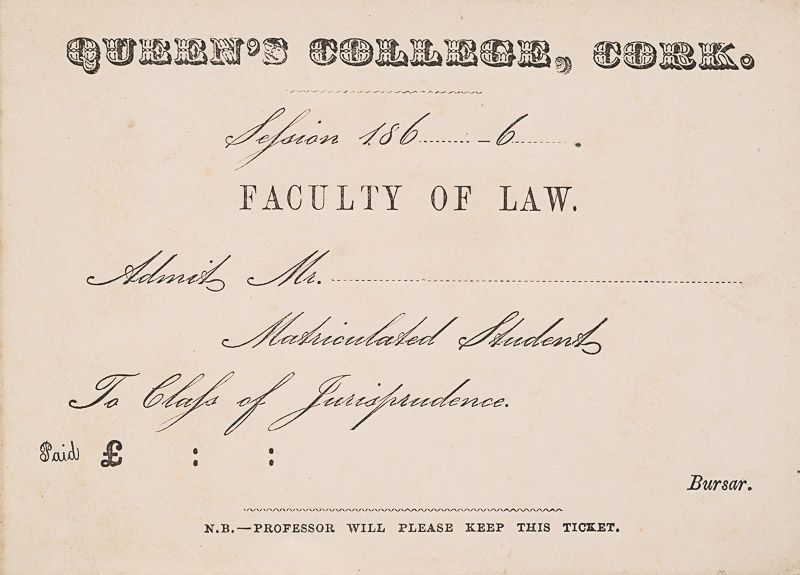 QUEEN'S COLLEGE, CORK.
Seſsion 186........-6........
FACULTY OF LAW.
Admit Mr. ........................................
Matriculated Student
To Claſs of Jurisprudence.
Paid £ : :
Bursar.
N.B.—PROFESSOR WILL PLEASE KEEP THIS TICKET.